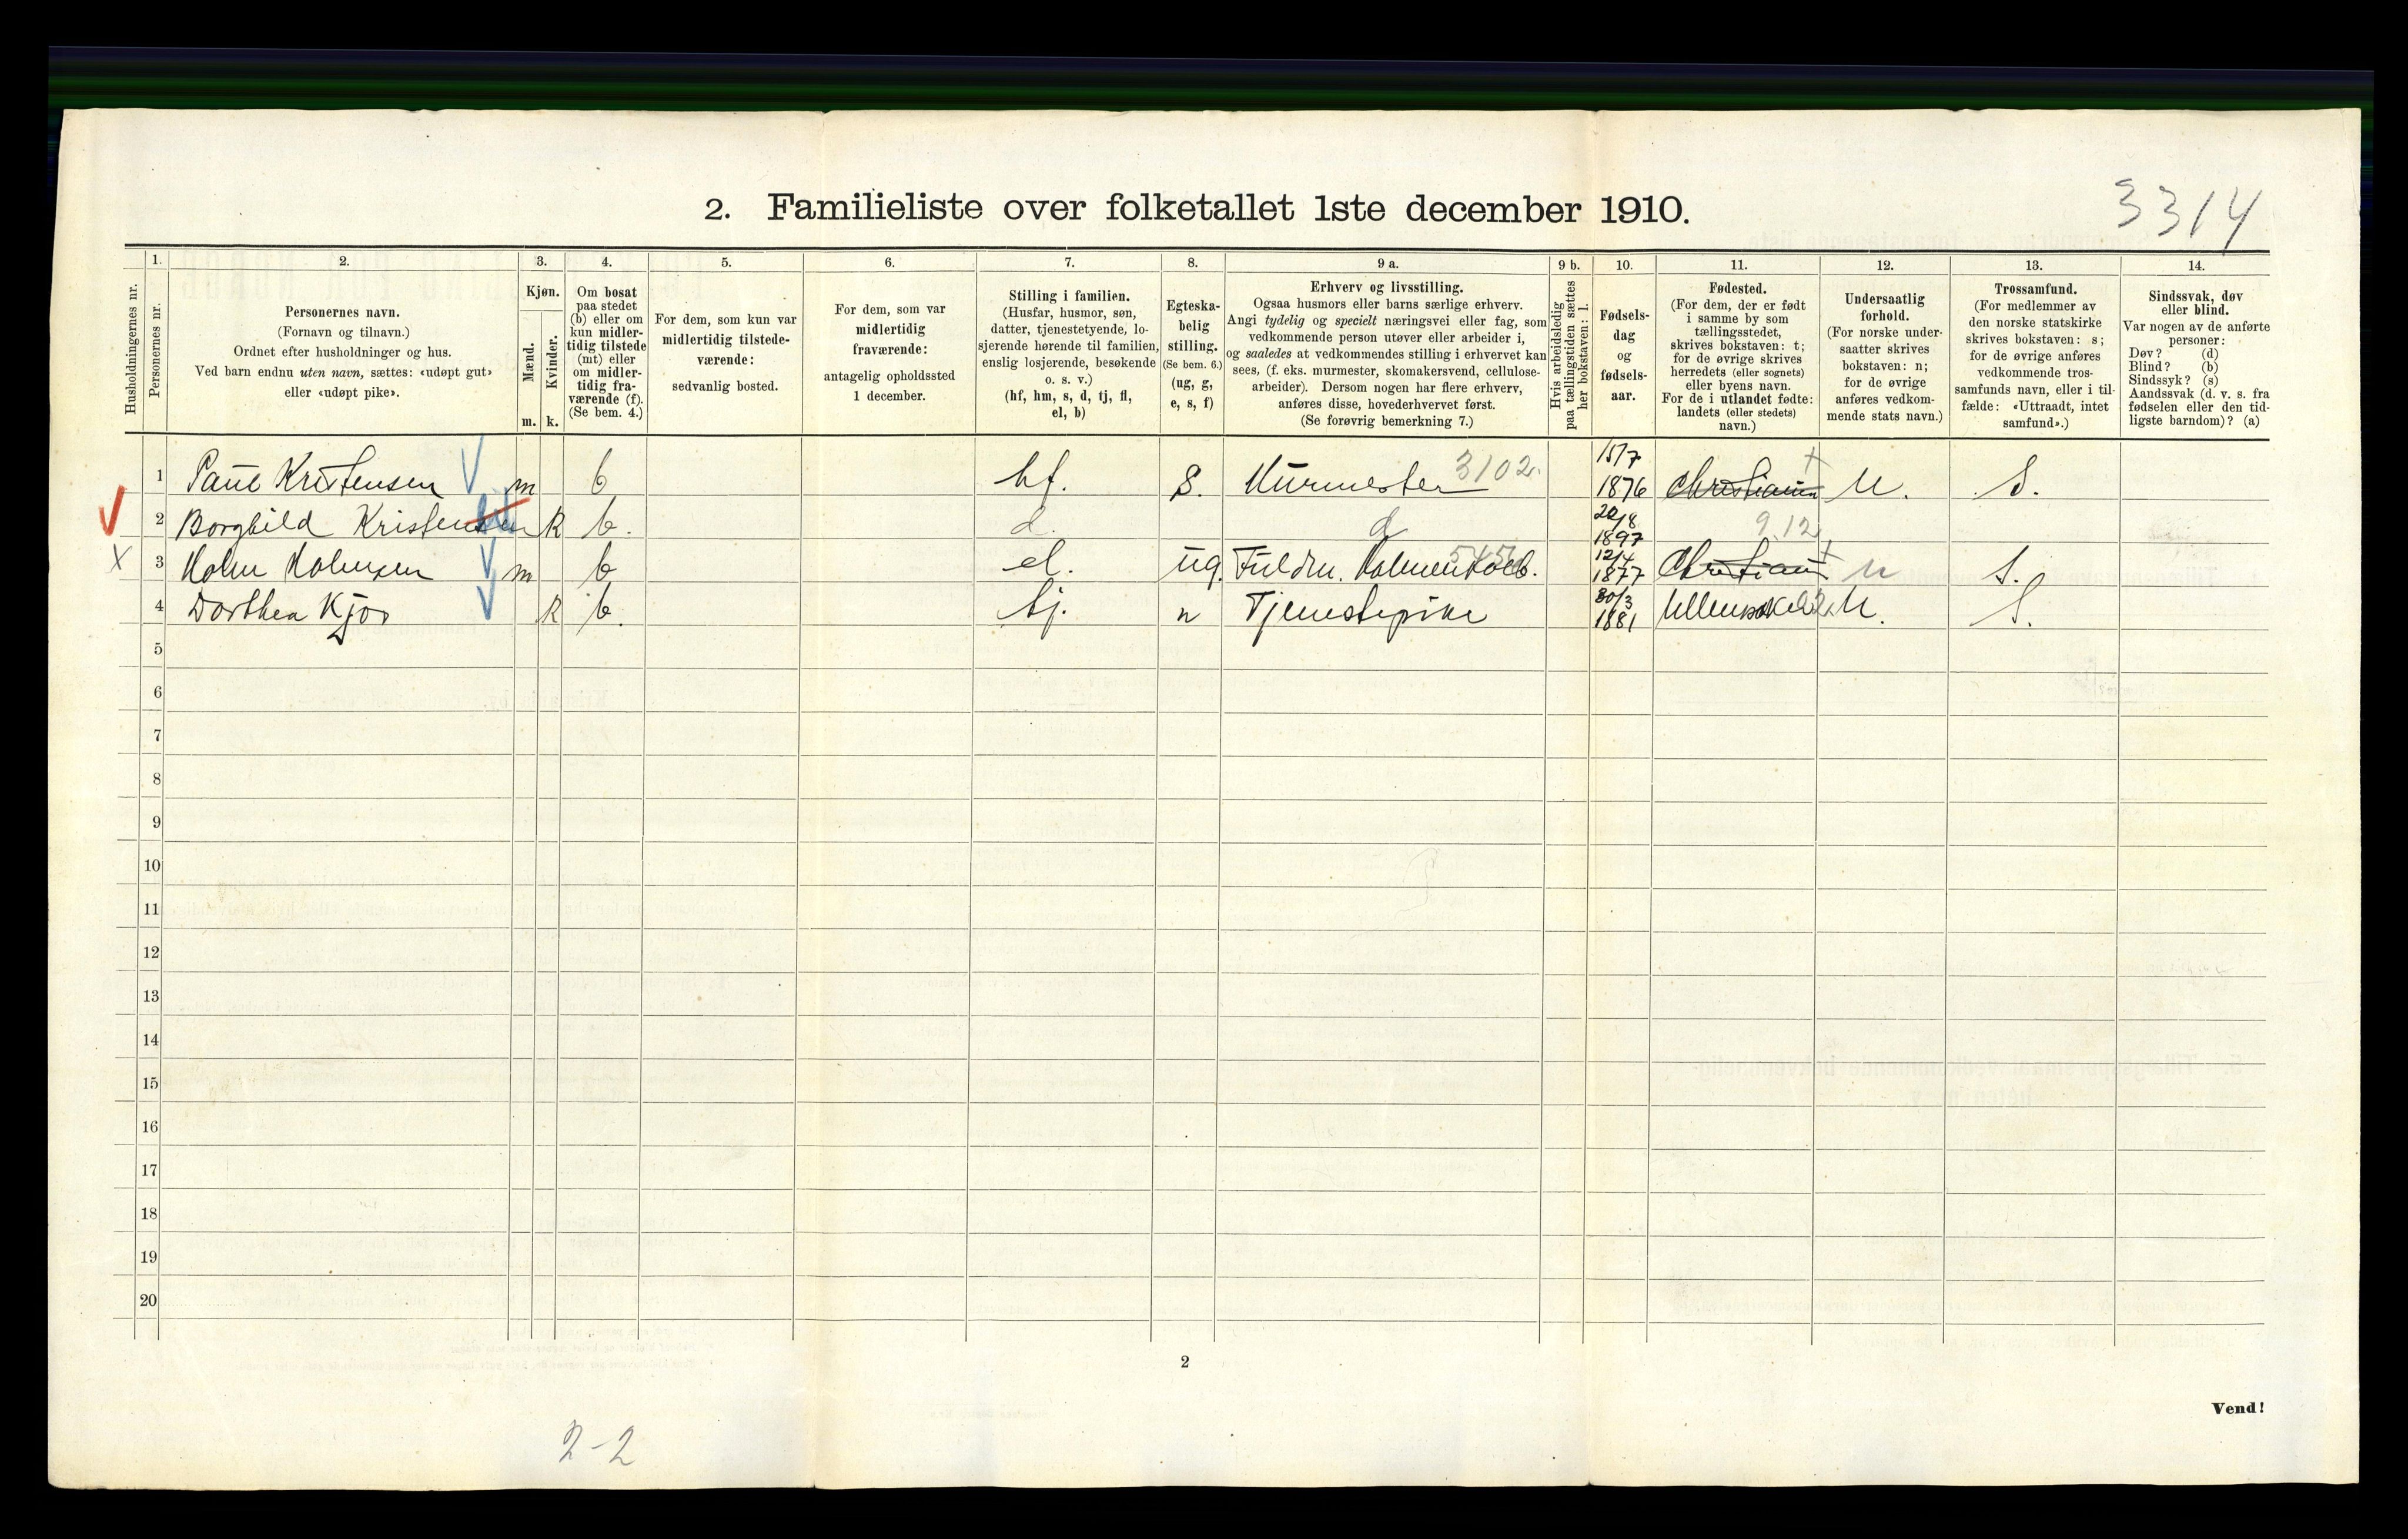 3314
2. Familieliste over folketallet 1ste december 1910.
Husholdningernes nr.
1. Personernes nr.
2. Personernes navn.
(Fornavn og tilnavn.)
Ordnet efter husholdninger og hus.
Ved barn endnu uten navn, sættes: «udøpt gut»
eller «udøpt pike».
3. Kjøn.
Mænd. m.
Kvinder. k.
4. Om bosat
paa stedet
(b) eller om
kun midler-
tidig tilstede
(mt) eller
om midler-
tidig fra-
værende (f).
(Se bem. 4.)
5. For dem, som kun var
midlertidig tilstede-
værende:
sedvanlig bosted.
6. For dem, som var
midlertidig
fraværende:
antagelig opholdssted
1 december.
7. Stilling i familien.
(Husfar, husmor, søn,
datter, tjenestetyende, lo-
sjerende hørende til familien,
enslig losjerende, besøkende
o. s. v.)
(hf, hm, s, d, tj, fl,
el, b)
8. Egteska-
belig
stilling.
(Se bem. 6.)
(ug, g,
e, s, f)
9 a. Erhverv og livsstilling.
Ogsaa husmors eller barns særlige erhverv.
Angi tydelig og specielt næringsvei eller fag, som
vedkommende person utøver eller arbeider i,
og saaledes at vedkommendes stilling i erhvervet kan
sees, (f. eks. murmester, skomakersvend, cellulose-
arbeider). Dersom nogen har flere erhverv,
anføres disse, hovederhvervet først.
(Se forøvrig bemerkning 7.)
9 b. Hvis arbeidsledig
paa tællingstiden sættes
her bokstaven: l.
10. Fødsels-
dag
og
fødsels-
aar.
11. Fødested.
(For dem, der er født
i samme by som
tællingsstedet,
skrives bokstaven: t;
for de øvrige skrives
herredets (eller sognets)
eller byens navn.
For de i utlandet fødte:
landets (eller stedets)
navn.)
12. Undersaatlig
forhold.
(For norske under-
saatter skrives
bokstaven: n;
for de øvrige
anføres vedkom-
mende stats navn.)
13. Trossamfund.
(For medlemmer av
den norske statskirke
skrives bokstaven: s;
for de øvrige anføres
vedkommende tros-
samfunds navn, eller i til-
fælde: «Uttraadt, intet
samfund».)
14. Sindssvak, døv
eller blind.
Var nogen av de anførte
personer:
Døv? (d)
Blind? (b)
Sindssyk? (s)
Aandssvak (d. v. s. fra
fødselen eller den tid-
ligste barndom)? (a)
1 Paul Kristensen m b hf. g. Murmester 3102. 15/7 1876 Christiania t n. S.
2 Borghild Kristensen k b. d. d 20/8 1897 9.12
X 3 Holm Holmsen m b el. ug. Fuldm. 12/4 1877 Christiania t n S.
4 Dorthea Kjos k b. tj. n Tjenestepike 30/3 1881 Ullensaker n. S.
5
6
7
8
9
10
11
12
13
14
15
16
17
18
19
20
2
Vend!
2-2